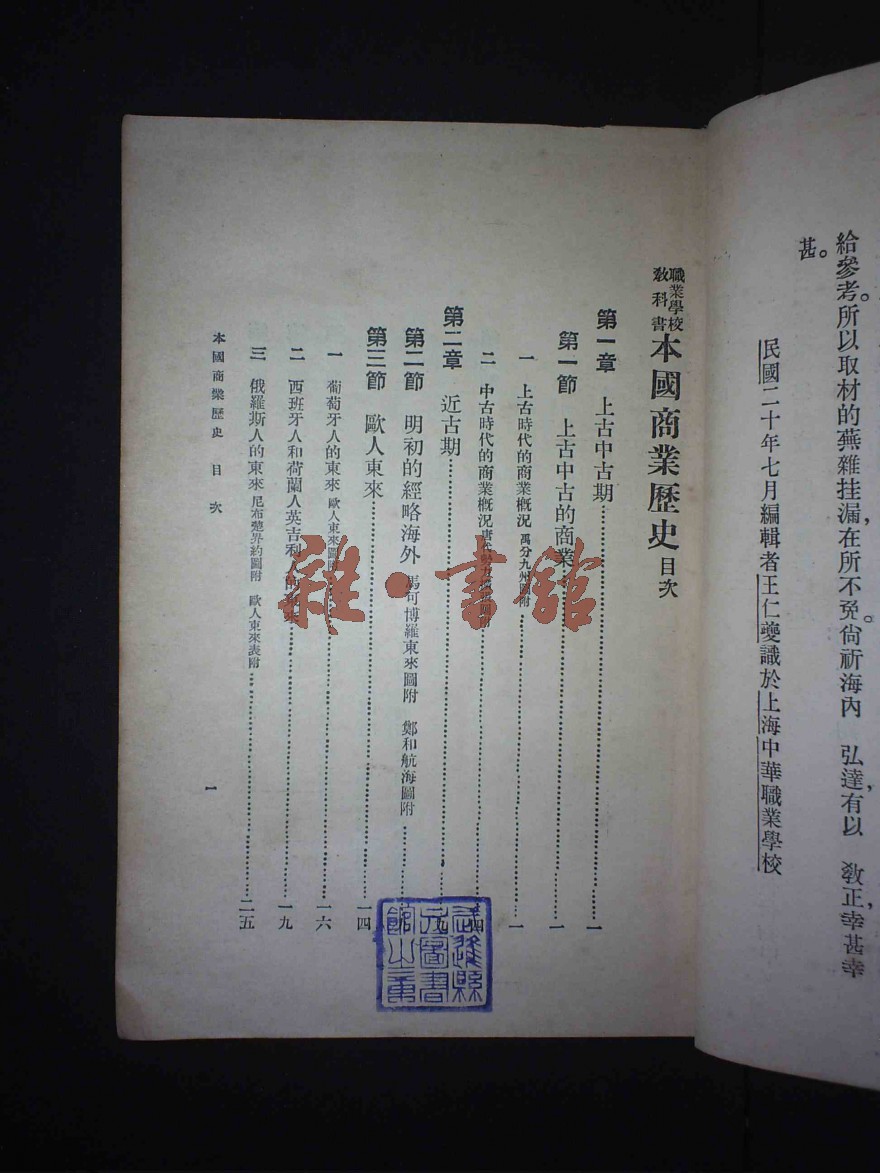 給參考。所以取材的蕪雜挂漏，在所不免。尙祈海內　弘達有以　教正，幸甚幸
甚。
民國二十年七月編輯者王仁夔識於上海中華職業學校
職業學校
教科書
本國商業歷史 目次
第一章 上古中古期…………一
第一節 上古中古的商業…………一
一 上古時代的商業概況 禹分九州圖附…………一
二 中古時代的商業概況 唐代…………四
第二章 近古期…………九
第二節 明初的經略海外 馬可博羅東來圖附 鄭和航海圖附…………
第三節 歐人東來…………一四
一 葡萄牙人的東來 歐人東來圖附…………一六
二 西班牙人和荷蘭人英吉利人的東來…………一九
三 俄羅斯人的東來 尼布楚界約圖附 歐人東來表附…………二五
本國商業歷史 目次
一
雜·書館
武進縣
立圖書
館之章